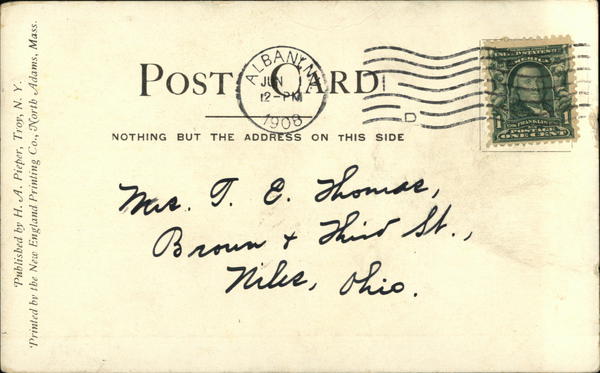 Published by H. A. Pieper, Troy, N. Y.
Printed by the New England Printing Co., North Adams, Mass.
POST CARD
ALBANY N.Y.
JUN
12-PM
1908
D
UNITED STATES OF
AMERICA
FRANKLIN
POSTAGE
ONE CENT
NOTHING BUT THE ADDRESS ON THIS SIDE
Mrs. T. E. Thomas,
Brown + Third St.,
Niles, Ohio.